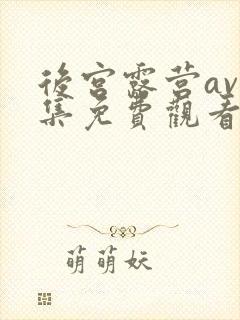 後宮露营av
集免費觀看
萌萌妖